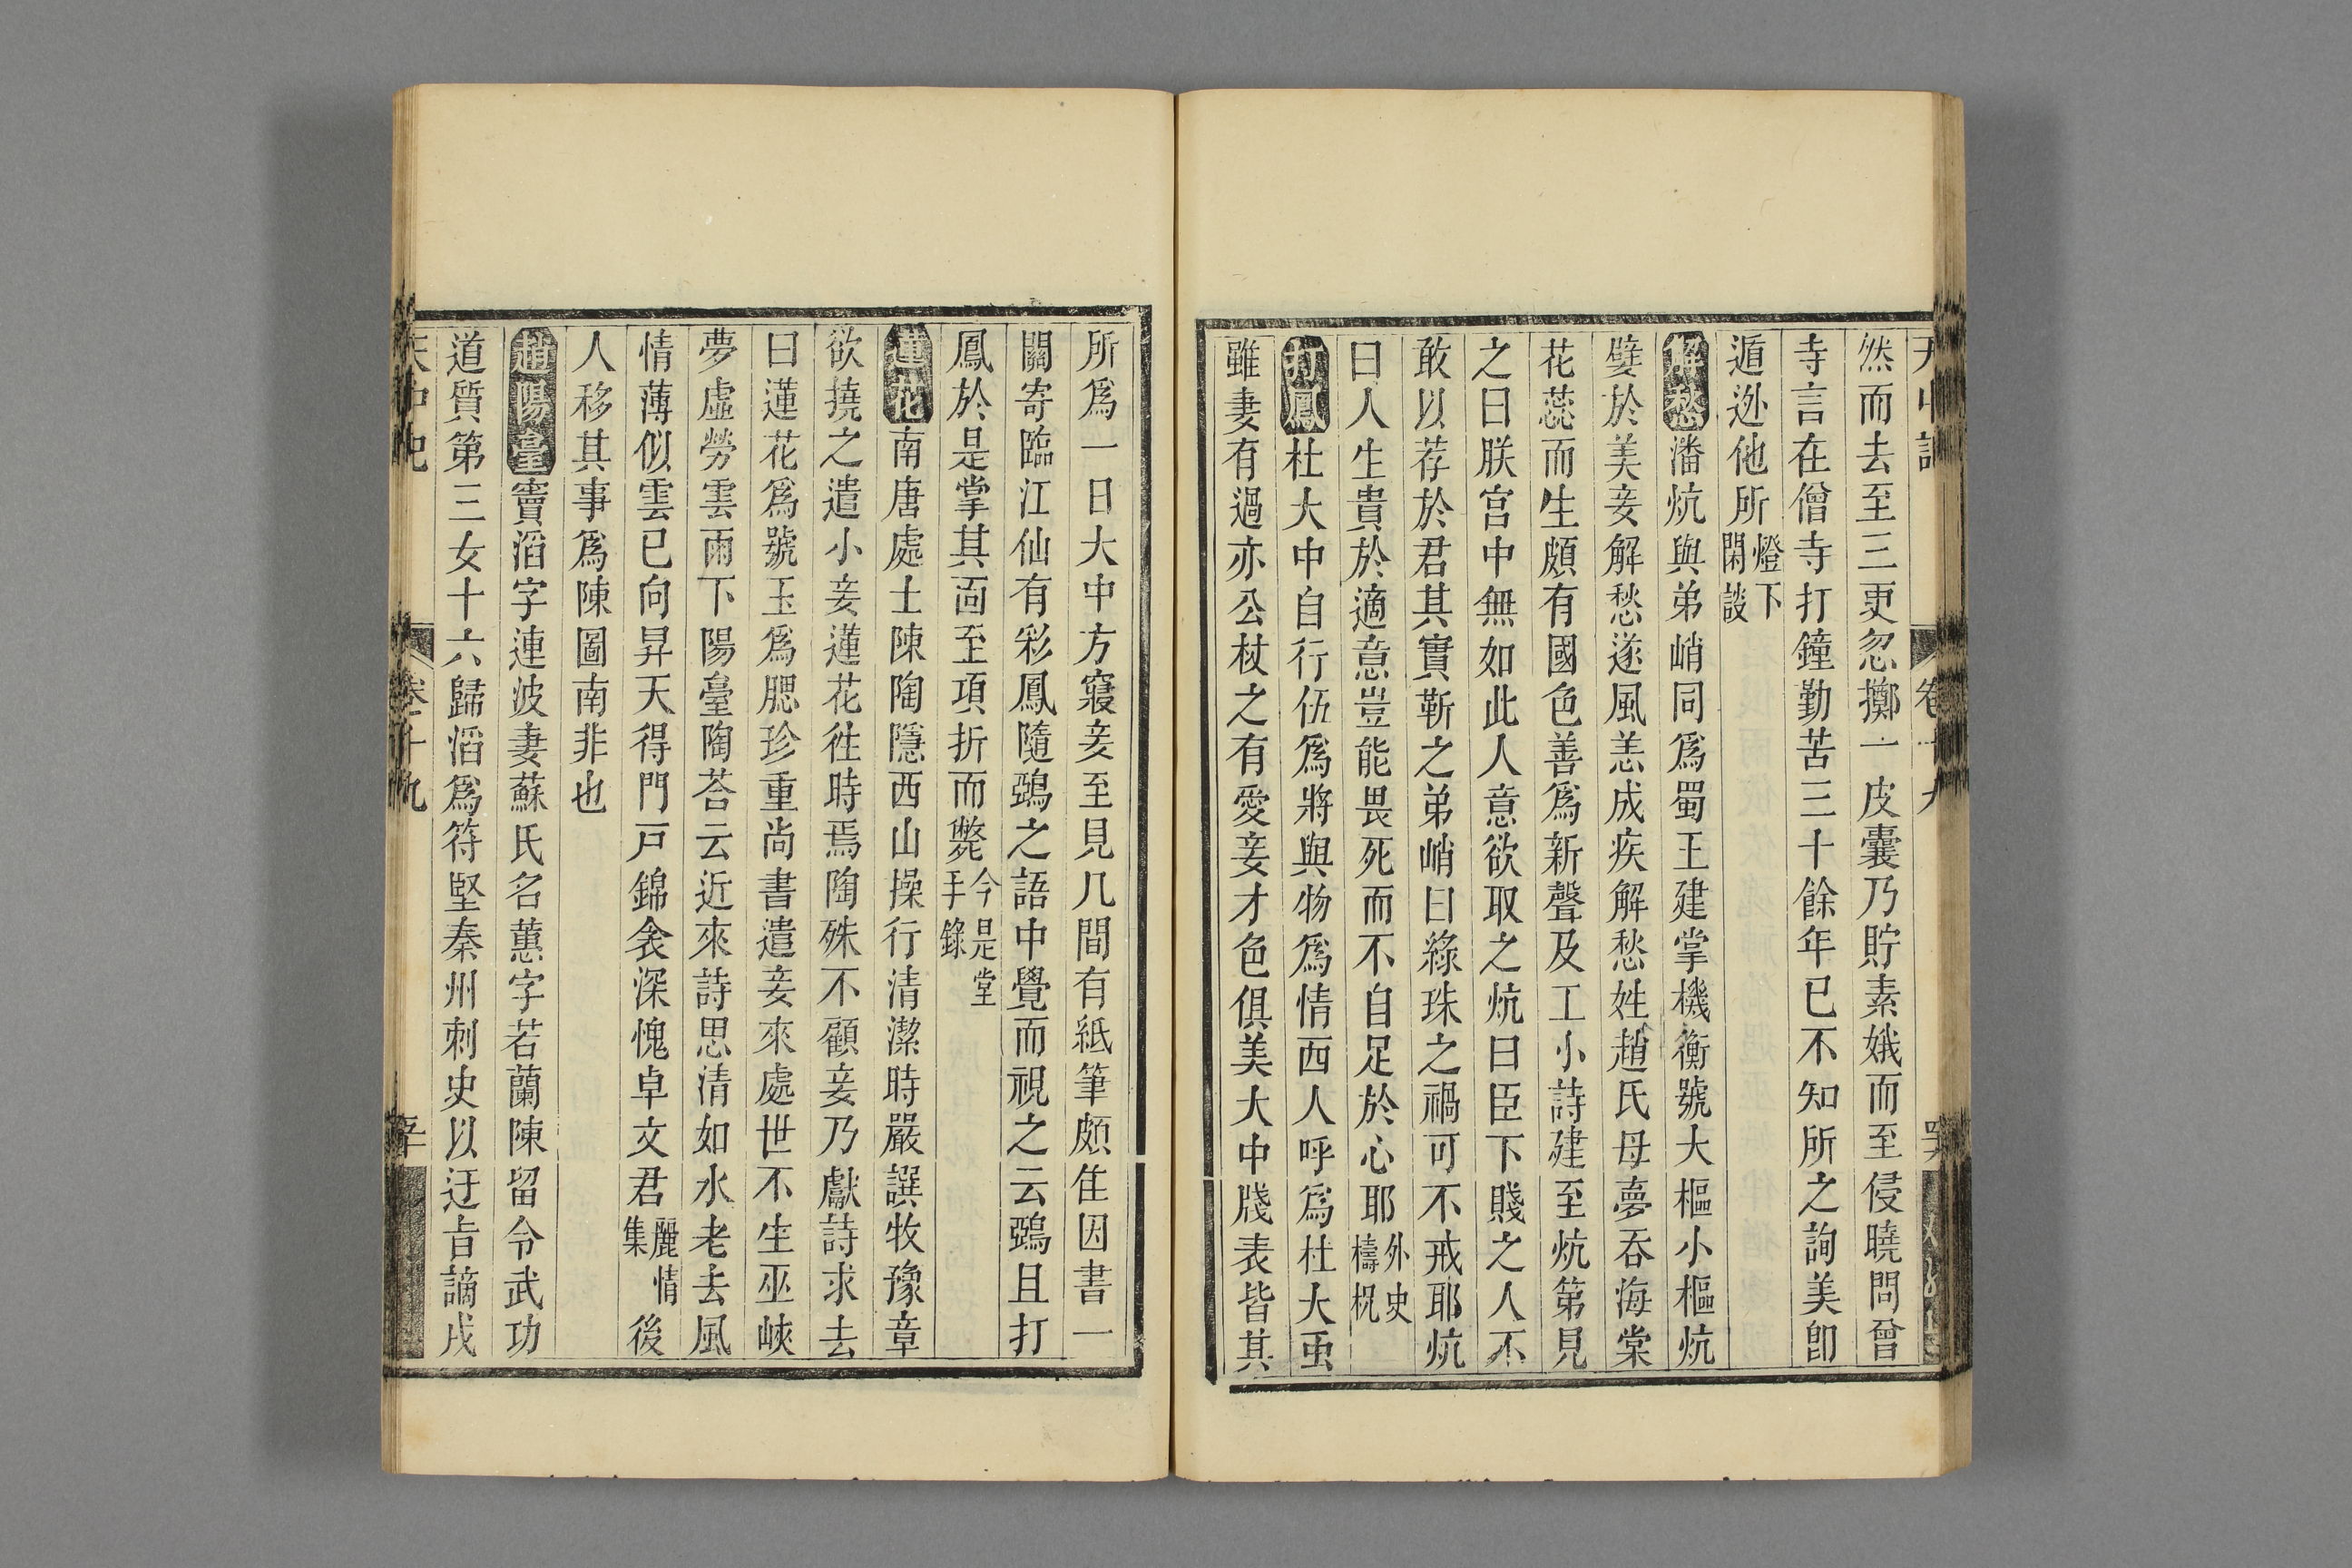 然而去至三更忽擲一皮囊乃貯素娥而至侵曉問曾
寺言在僧寺打鐘勤苦三十餘年已不知所之詢美卽
遁迯他所燈下閑談
解愁潘炕與弟峭同爲蜀王建掌機衡號大樞小樞炕
嬖於美妾解愁遂風恙成疾解愁姓趙氏母夢吞海棠
花蕊而生頗有國色善爲新聲及工小詩建至炕第見
之曰朕宮中無如此人意欲取之炕曰臣下賤之人不
敢以荐於君其實靳之弟峭曰綠珠之禍可不戒耶炕
曰人生貴於適意豈能畏死而不自足於心耶外史檮杌
打鳳杜大中自行伍爲將與物爲情西人呼爲杜大虫
雖妻有過亦公杖之有愛妾才色俱美大中牋表皆其
所爲一日大中方寢妾至見几間有紙筆頗佳因書一
闋寄臨江仙有彩鳳隨鴉之語中覺而視之云鴉且打
鳳於是掌其面至項折而斃今是堂手錄
蓮花南唐處士陳陶隱西山操行清潔時嚴譔牧豫章
欲撓之遣小妾蓮花徃時焉陶殊不顧妾乃獻詩求去
曰蓮花爲號玉爲腮珍重尚書遣妾來處世不生巫峽
夢虛勞雲雨下陽臺陶荅云近來詩思清如水老去風
情薄似雲已向昇天得門戸錦衾深愧卓文君麗情集後
人移其事爲陳圖南非也
趙陽臺竇滔字連波妻蘇氏名蕙字若蘭陳留令武功
道質第三女十六歸滔爲符堅秦州刺史以迕旨謫戍
卷十九